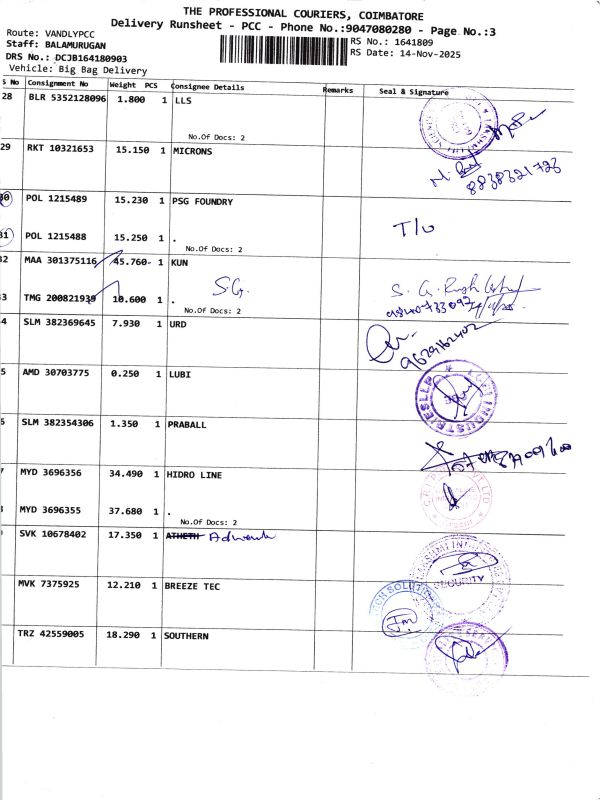 THE PROFESSIONAL COURIERS, COIMBATORE
Delivery Runsheet - PCC - Phone No.:9047080280 - Page No.:3
Route: VANDLYPCC
Staff: BALAMURUGAN
RS No.: 1641809
DRS No.: DCJB164180903
RS Date: 14-Nov-2025
Vehicle: Big Bag Delivery
S No Consignment No Weight PCS Consignee Details Remarks Seal & Signature
28 BLR 5352128096 1.800 1 LLS
No.Of Docs: 2
29 RKT 10321653 15.150 1 MICRONS
8838321723
30 POL 1215489 15.230 1 PSG FOUNDRY
T/o
31 POL 1215488 15.250 1 .
No.Of Docs: 2
32 MAA 301375116 45.760 1 KUN
S.G.
3 TMG 200821939 10.600 1 .
No.Of Docs: 2
4 SLM 382369645 7.930 1 URD
9629162402
5 AMD 30703775 0.250 1 LUBI
6 SLM 382354306 1.350 1 PRABALL
7 MYD 3696356 34.490 1 HIDRO LINE
8 MYD 3696355 37.680 1 .
No.Of Docs: 2
SVK 10678402 17.350 1 ATHETH
SECURITY
MVK 7375925 12.210 1 BREEZE TEC
TRZ 42559005 18.290 1 SOUTHERN